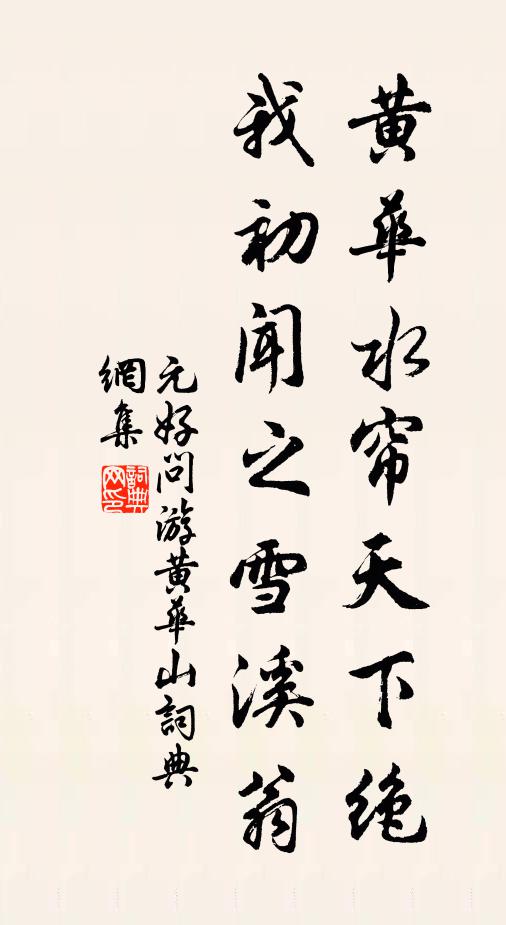 黃華水帘天下絶
我初聞之雪溪翁
元好问游黃華山詞典
網集
詞典
网印